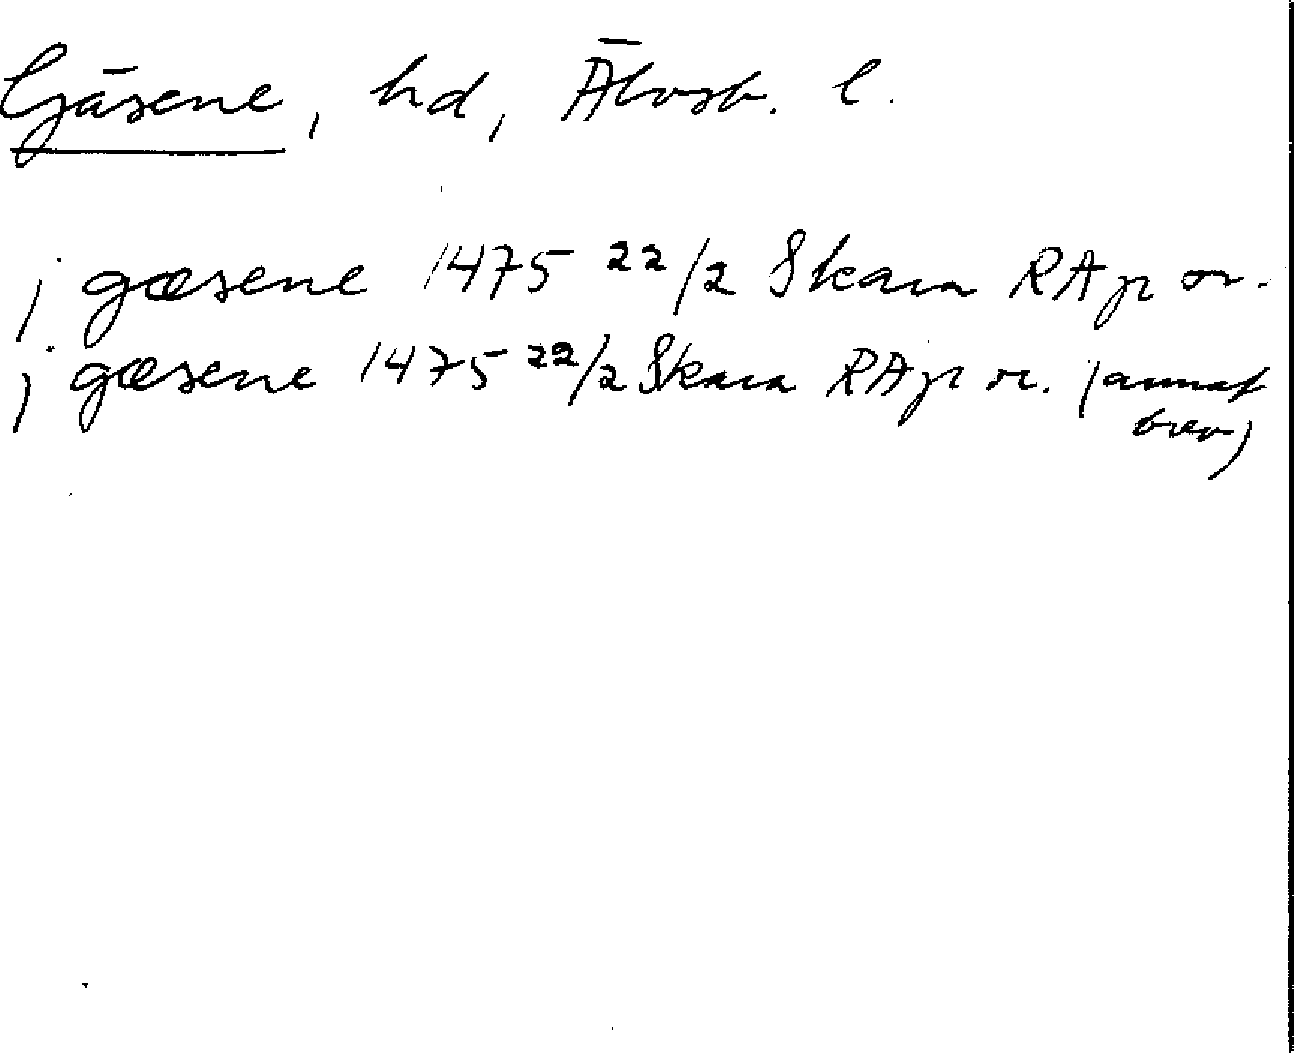 Gäsene, hd, Älvsb. l.
j gæsene 1475 22/2 Skara RAp or.
j gæsene 1475 22/2 Skara RAp or. (annat
brev)